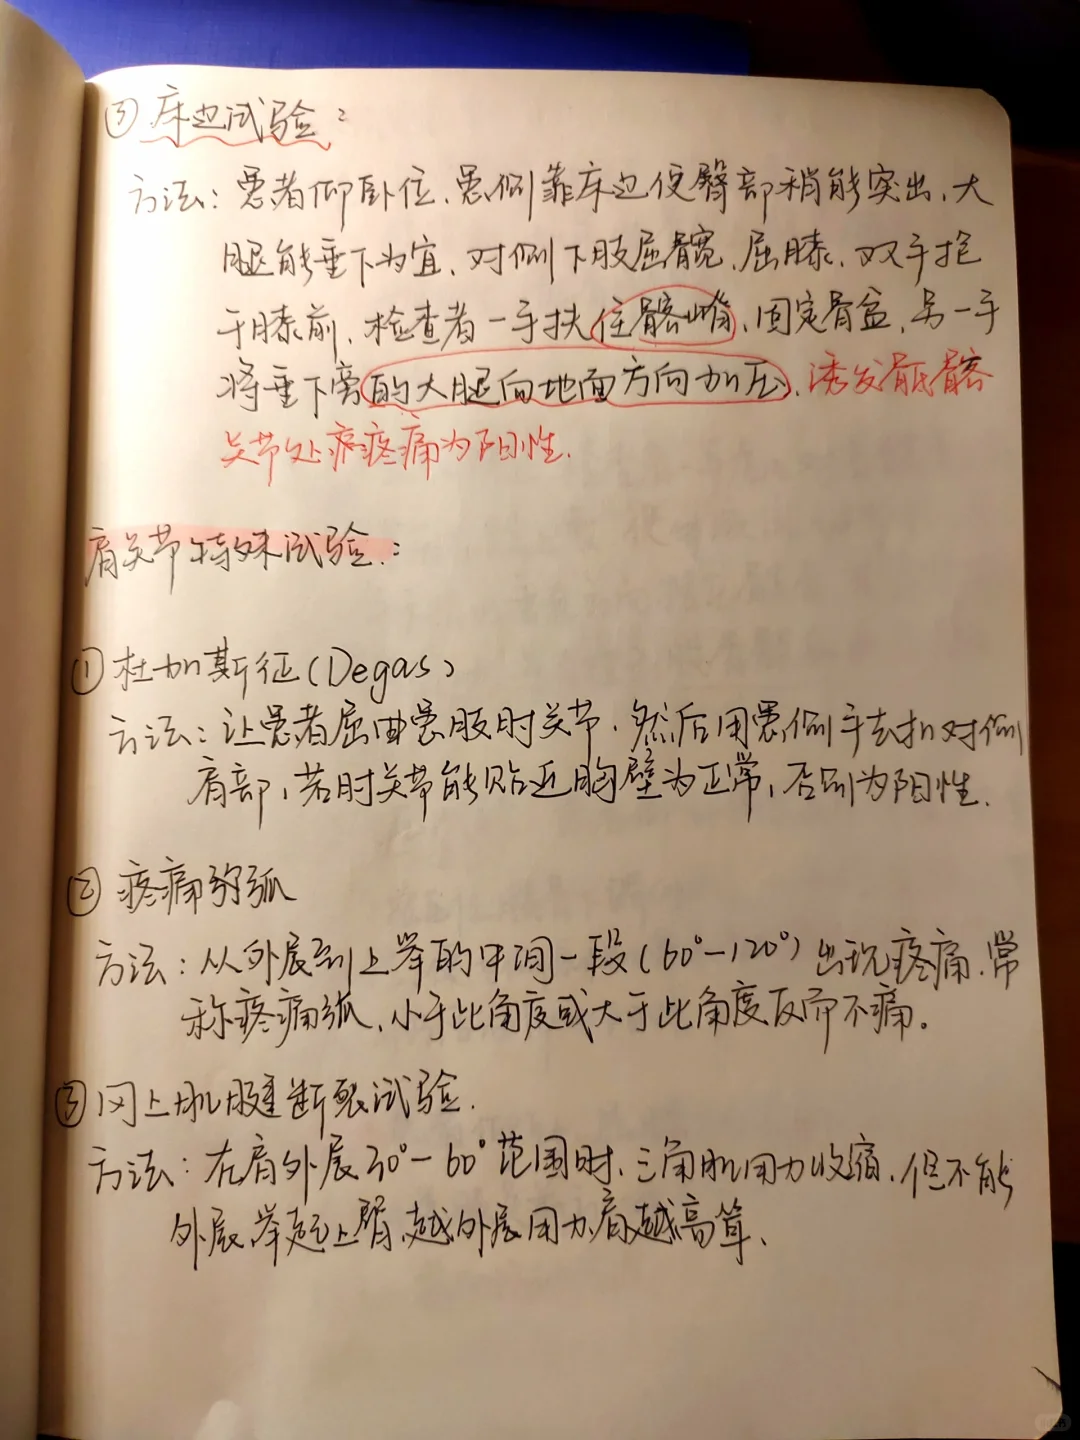 ③床边试验：
方法：患者仰卧位、患侧靠床边使臀部稍能突出、大
腿能垂下为宜、对侧下肢屈髋、屈膝、双手抱
于膝前、检查者一手扶住髂嵴、固定骨盆、另一手
将垂下旁的大腿向地面方向加压、诱发骶髂
关节处疼痛为阳性.
肩关节特殊试验：
①杜加斯征(Degas)
方法：让患者屈曲患肢肘关节、然后用患侧手去扣对侧
肩部，若肘关节能贴近胸壁为正常，否则为阳性.
②疼痛弧
方法：从外展到上举的中间一段(60°-120°)出现疼痛.常
称疼痛弧、小于此角度或大于此角度反而不痛。
③冈上肌腱断裂试验.
方法：在肩外展30°-60°范围时、三角肌用力收缩、但不能
外展、举起上臂、越外展用力、肩越高耸、